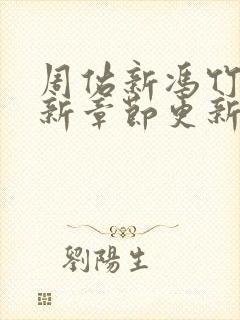 周佑新冯竹
新章节更新
劉陽生